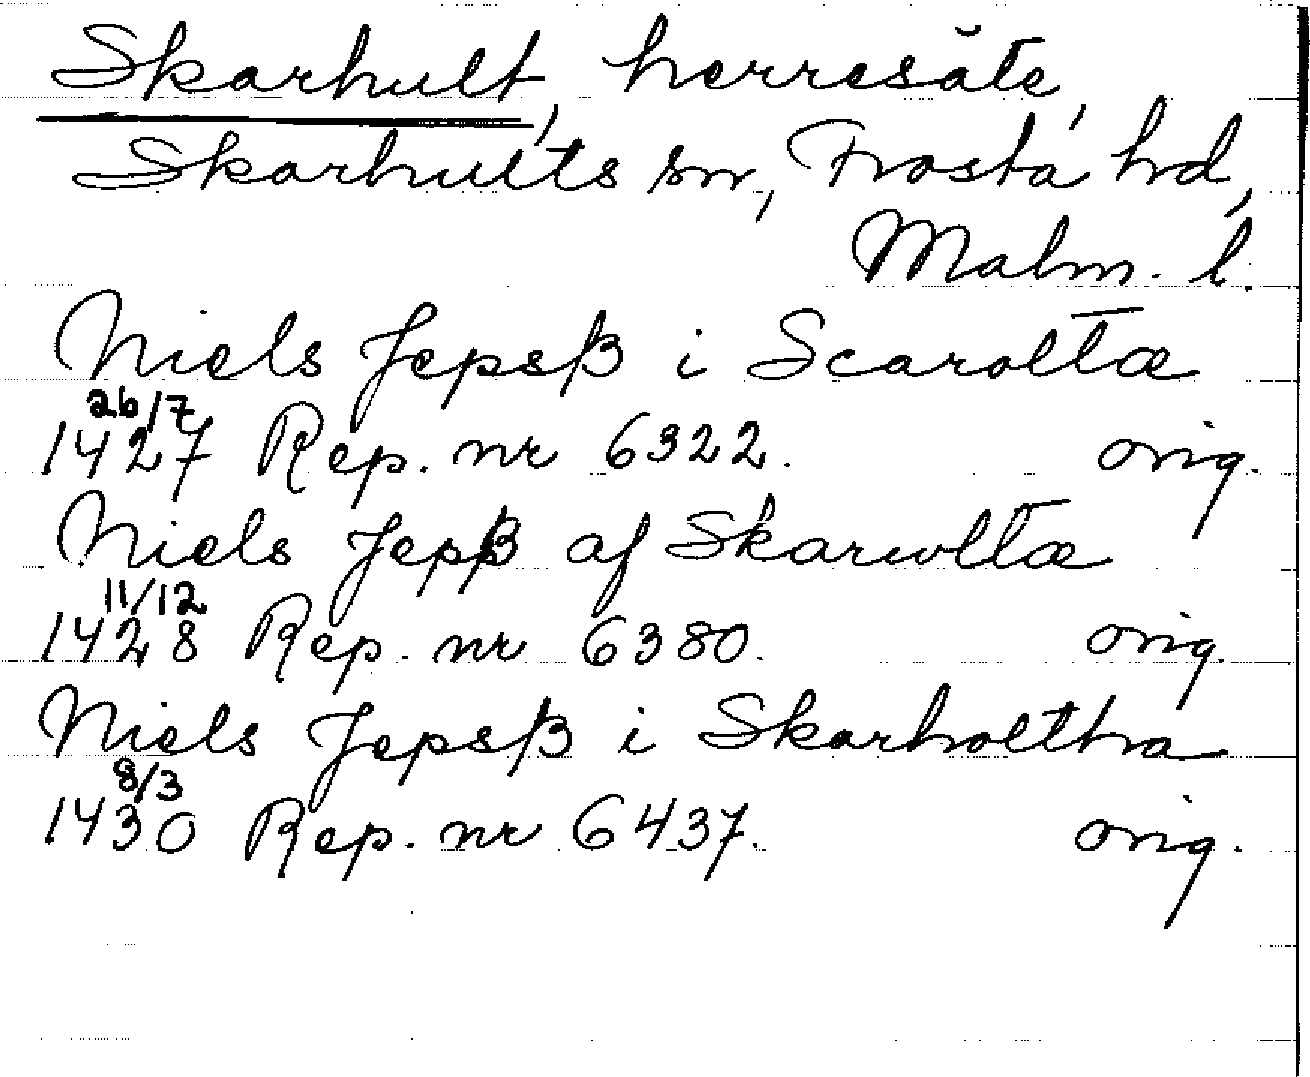 Skarhult, herresäte,
Skarhults sn, Frosta hd,
Malm. l.
Niels Jepsß i Scaroltæ
26/7
1427 Rep. nr 6322. orig.
Niels Jepß af Skarwltæ
11/12
1428 Rep. nr 6380. orig.
Niels Jepsß i Skarholtha
8/3
1430 Rep. nr 6437. orig.